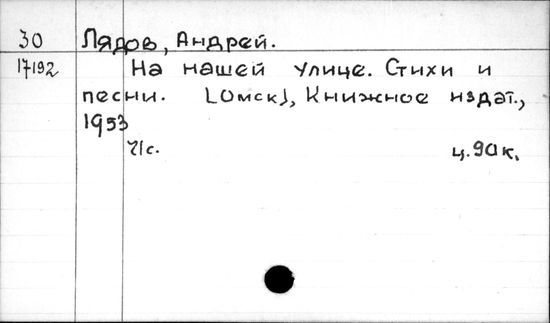 30 Лядов, Андрей.
17192 На нашей улице. Стихи и
песни. [Омск], Книжное издат.,
1953
71с. ц.90к.